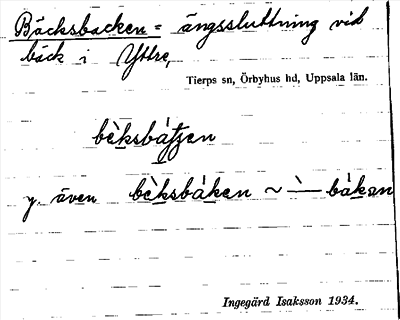 Bäcksbacken = ängssluttning vid
bäck i Yttre,
Tierps sn, Örbyhus hd, Uppsala län.
bèksbátʒen
y. även bèksbáken ~ `— bákan
Ingegärd Isaksson 1934.